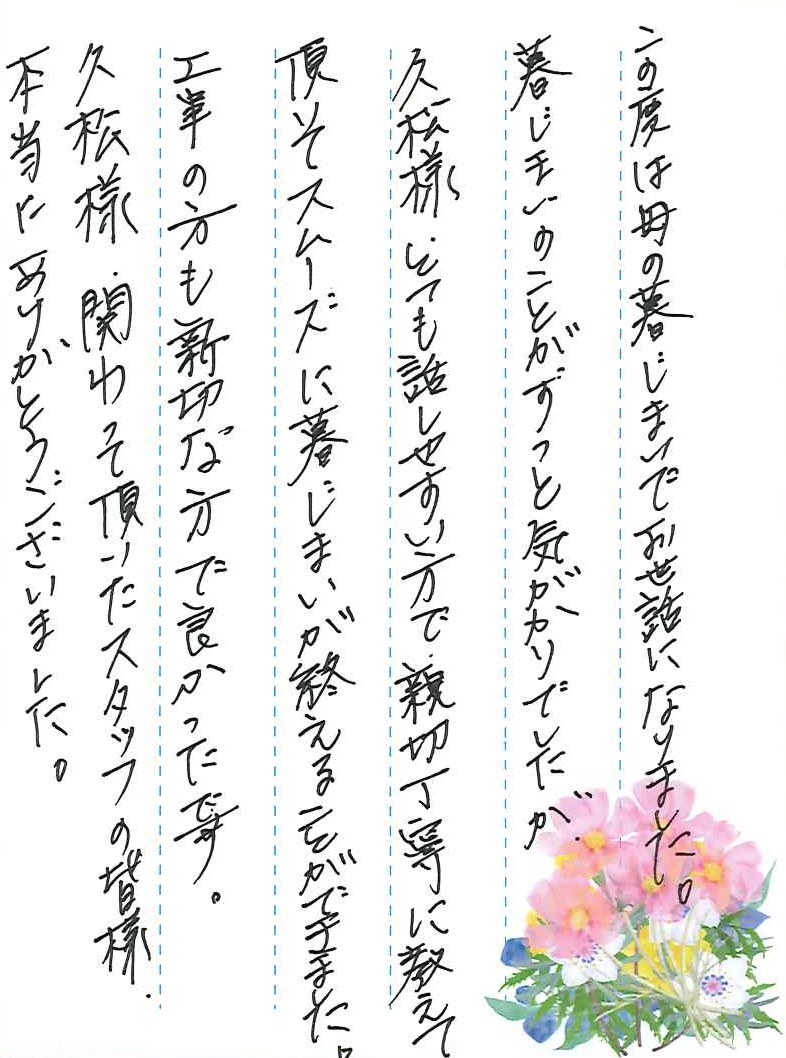 この度は母の墓じまいでお世話になりました。
墓じまいのことがずっと気がかりでしたが、
久松様とても話しやすい方で、親切丁寧に教えて
頂いてスムーズに墓じまいが終えることができました。
工事の方も新切な方で良かったです。
久松様、関わって頂いたスタッフの皆様、
本当にありがとうございました。